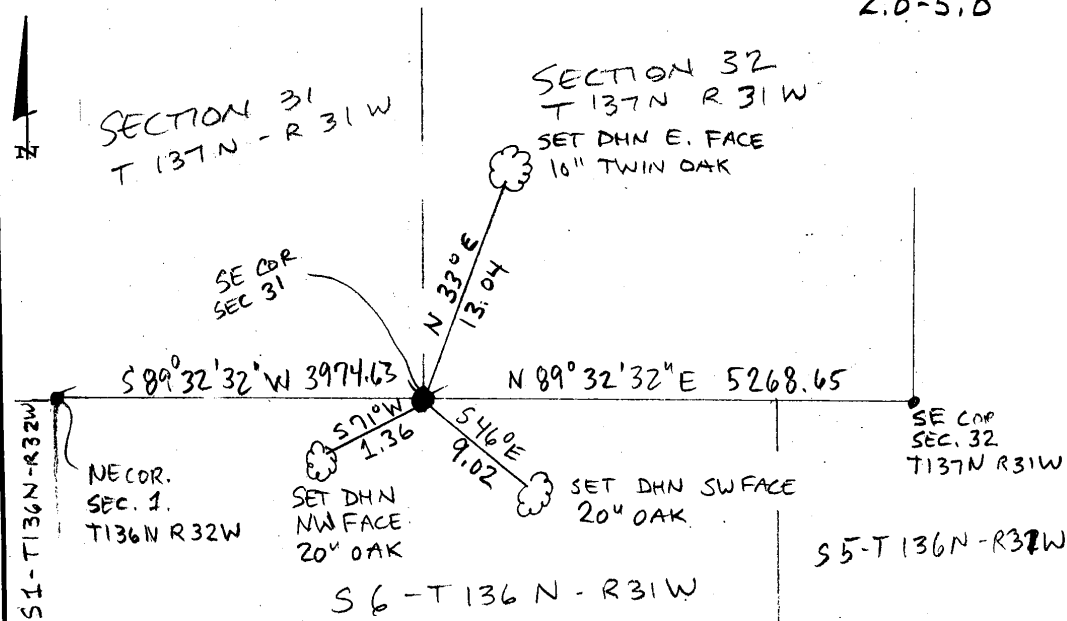 2.0-5.0
SECTION 31
T 137 N - R 31 W
SECTION 32
T 137N R 31 W
SET DHN E. FACE
10" TWIN OAK
N
SE COR
SEC 31
N 33° E
13.04
S 89° 32' 32" W 3974.63
N 89° 32' 32" E 5268.65
S 71° W
1.36
S 46° E
9.02
SE COR
SEC. 32
T137N R31W
NE COR.
SEC. 1.
T136N R 32W
S1 - T136N - R32W
SET DHN
NW FACE
20" OAK
SET DHN SW FACE
20" OAK
S 5 - T 136N - R31W
S 6 - T 136 N - R 31 W